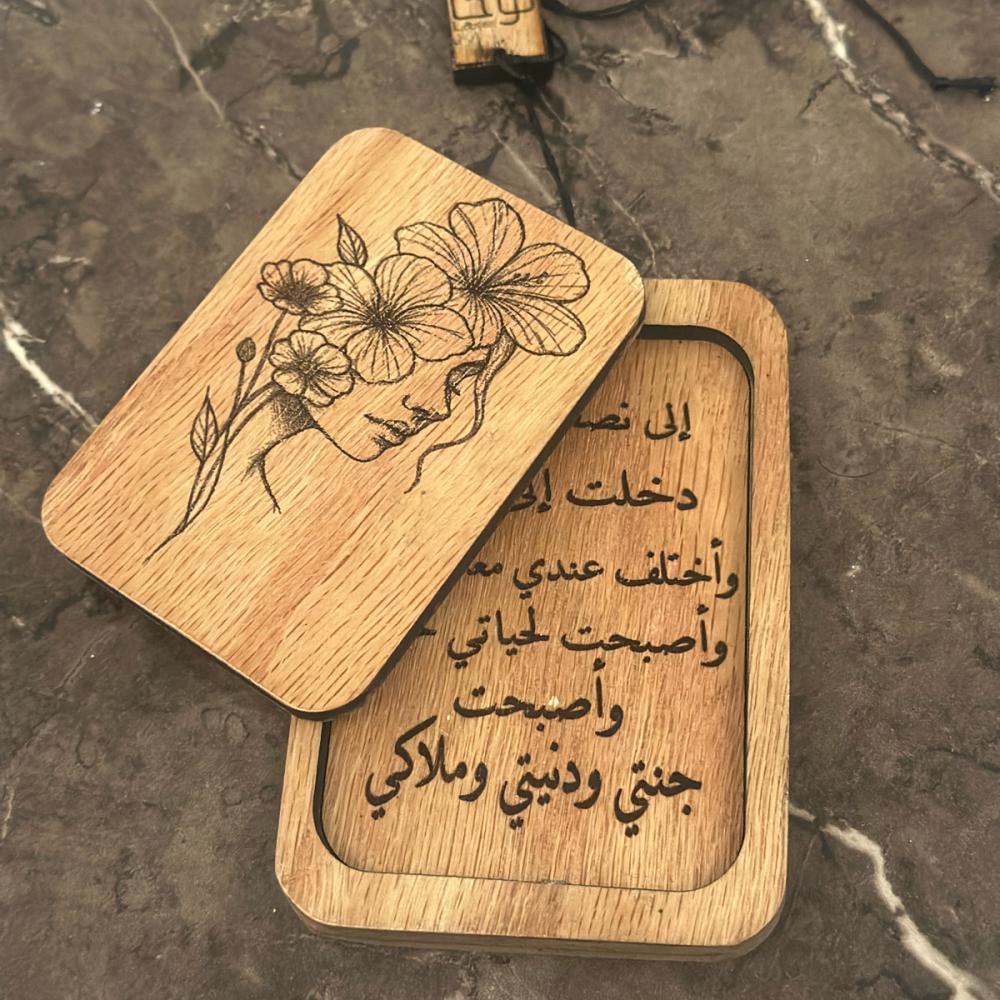 إلى
دخلت إلى
وأختلف عندي
وأصبحت لحياتي
وأصبحت
جنتي ودنيتي وملاكي